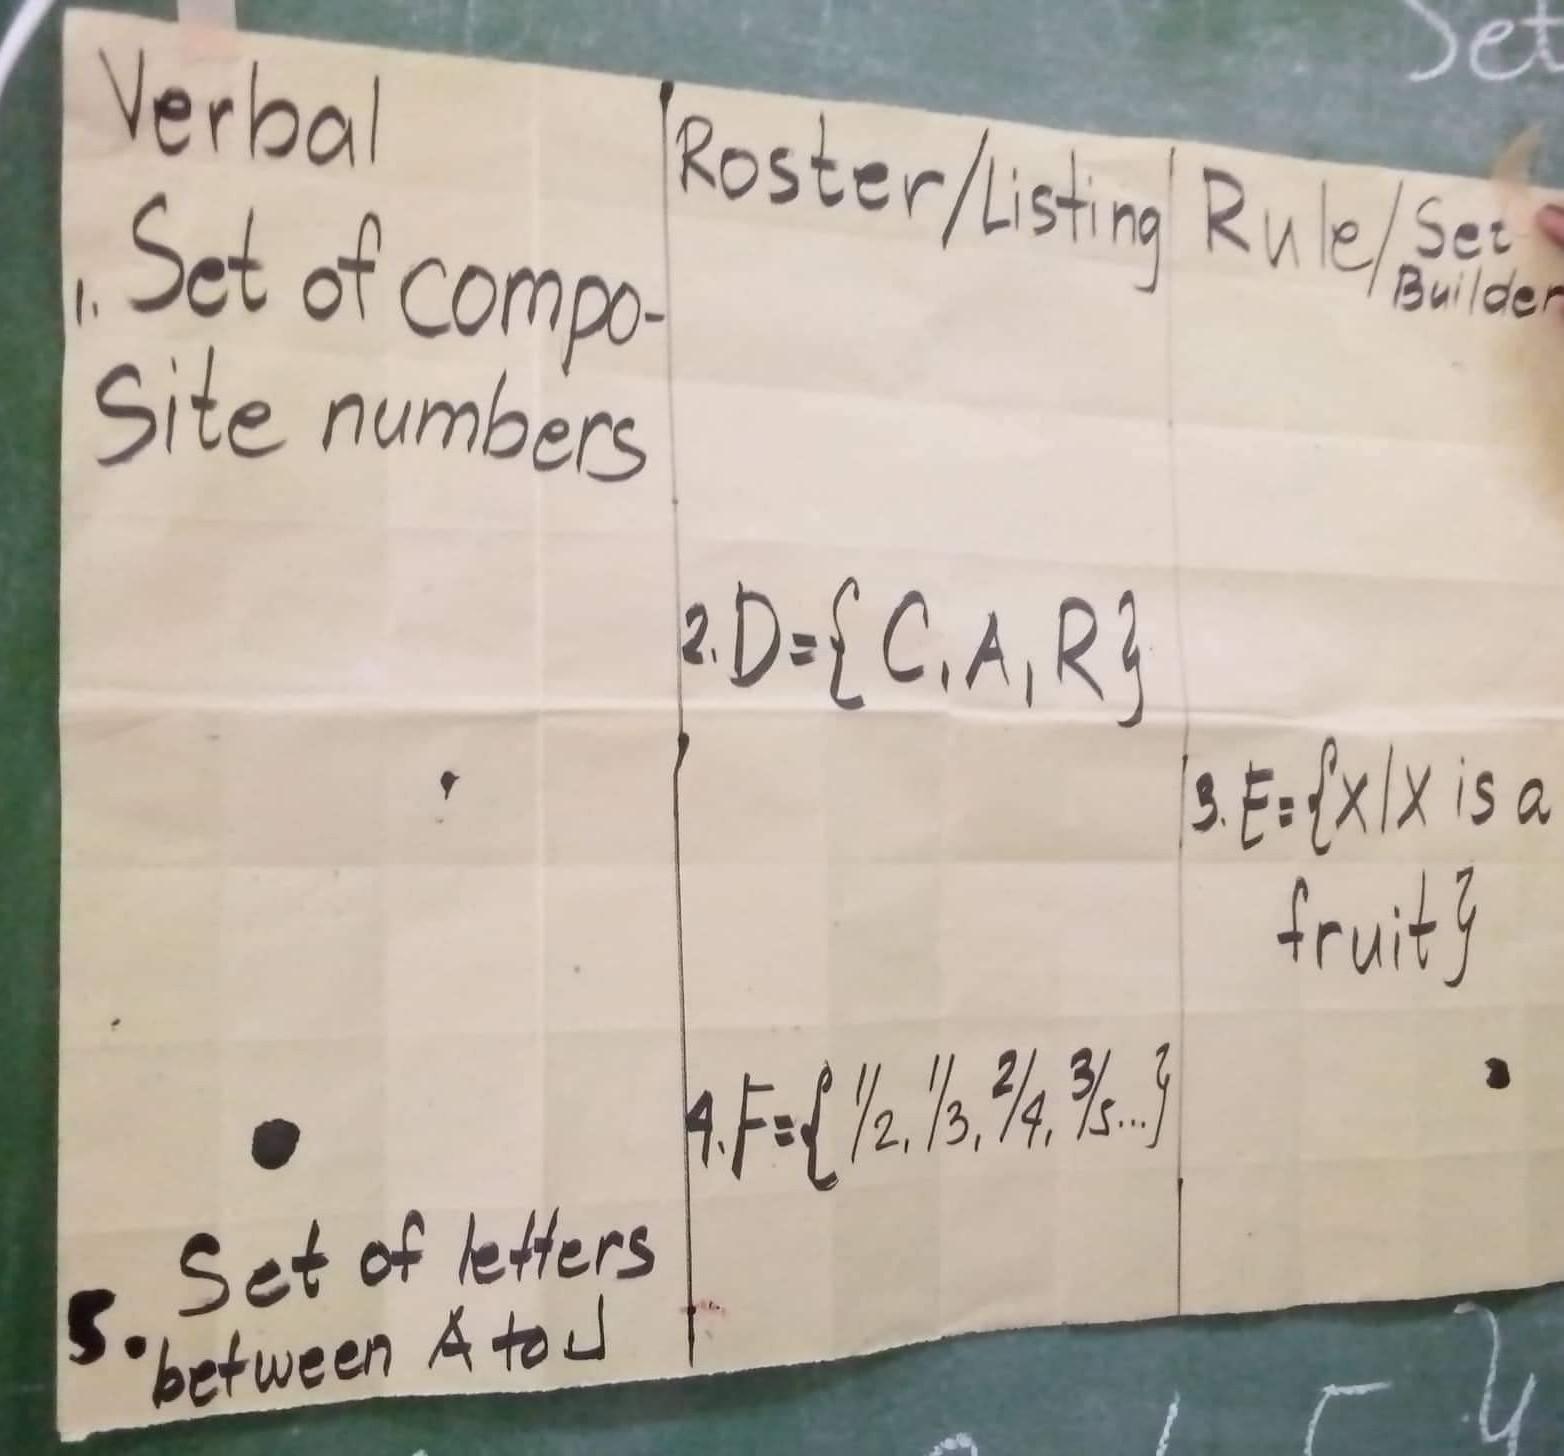 Set
Verbal
Roster/Listing
Rule/Set
Builder
1. Set of compo-
site numbers
2. D={ C, A, R}
3. E={x/x is a
fruit}
4. F={ 1/2, 1/3, 2/4, 3/5...}
5. Set of letters
between A to J